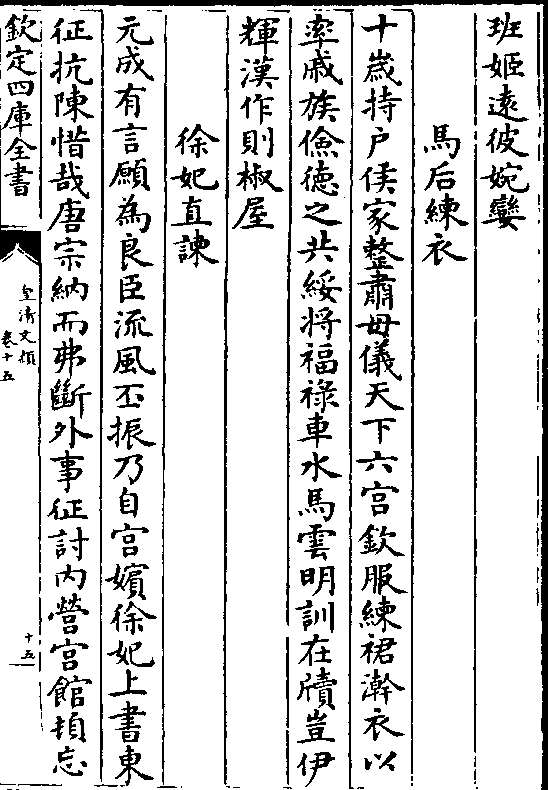 班姬遠彼婉孌
馬后練衣
十歲持户侯家整肅母儀天下六宫欽服練裙澣衣以
率戚族儉徳之共綏將福祿車水馬雲明訓在牘豈伊
輝漢作則椒屋
徐妃直諫
元成有言願為良臣流風丕振乃自宫嬪徐妃上書東
征抗陳惜哉唐宗納而弗斷外事征討内營宫館頓忘
欽定四庫全書
皇清文頴
卷十五
十五